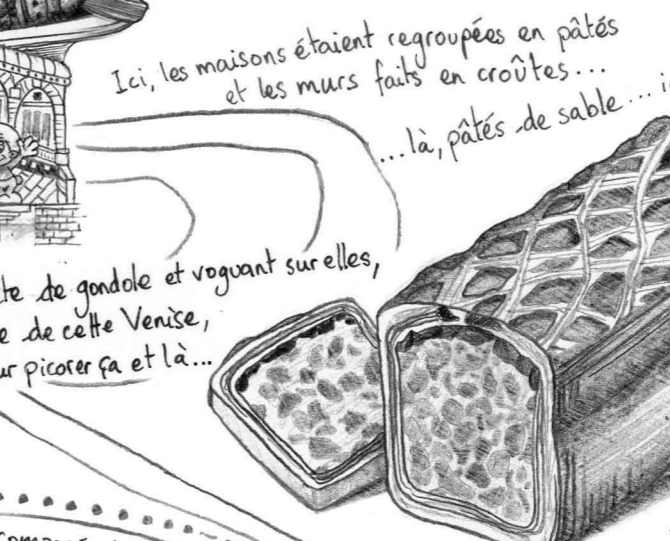 Ici, les maisons étaient regroupées en pâtés
et les murs faits en croûtes...
...là, pâtés de sable...
de gondole et voguant sur elles,
de cette Venise,
picorer ça et là...